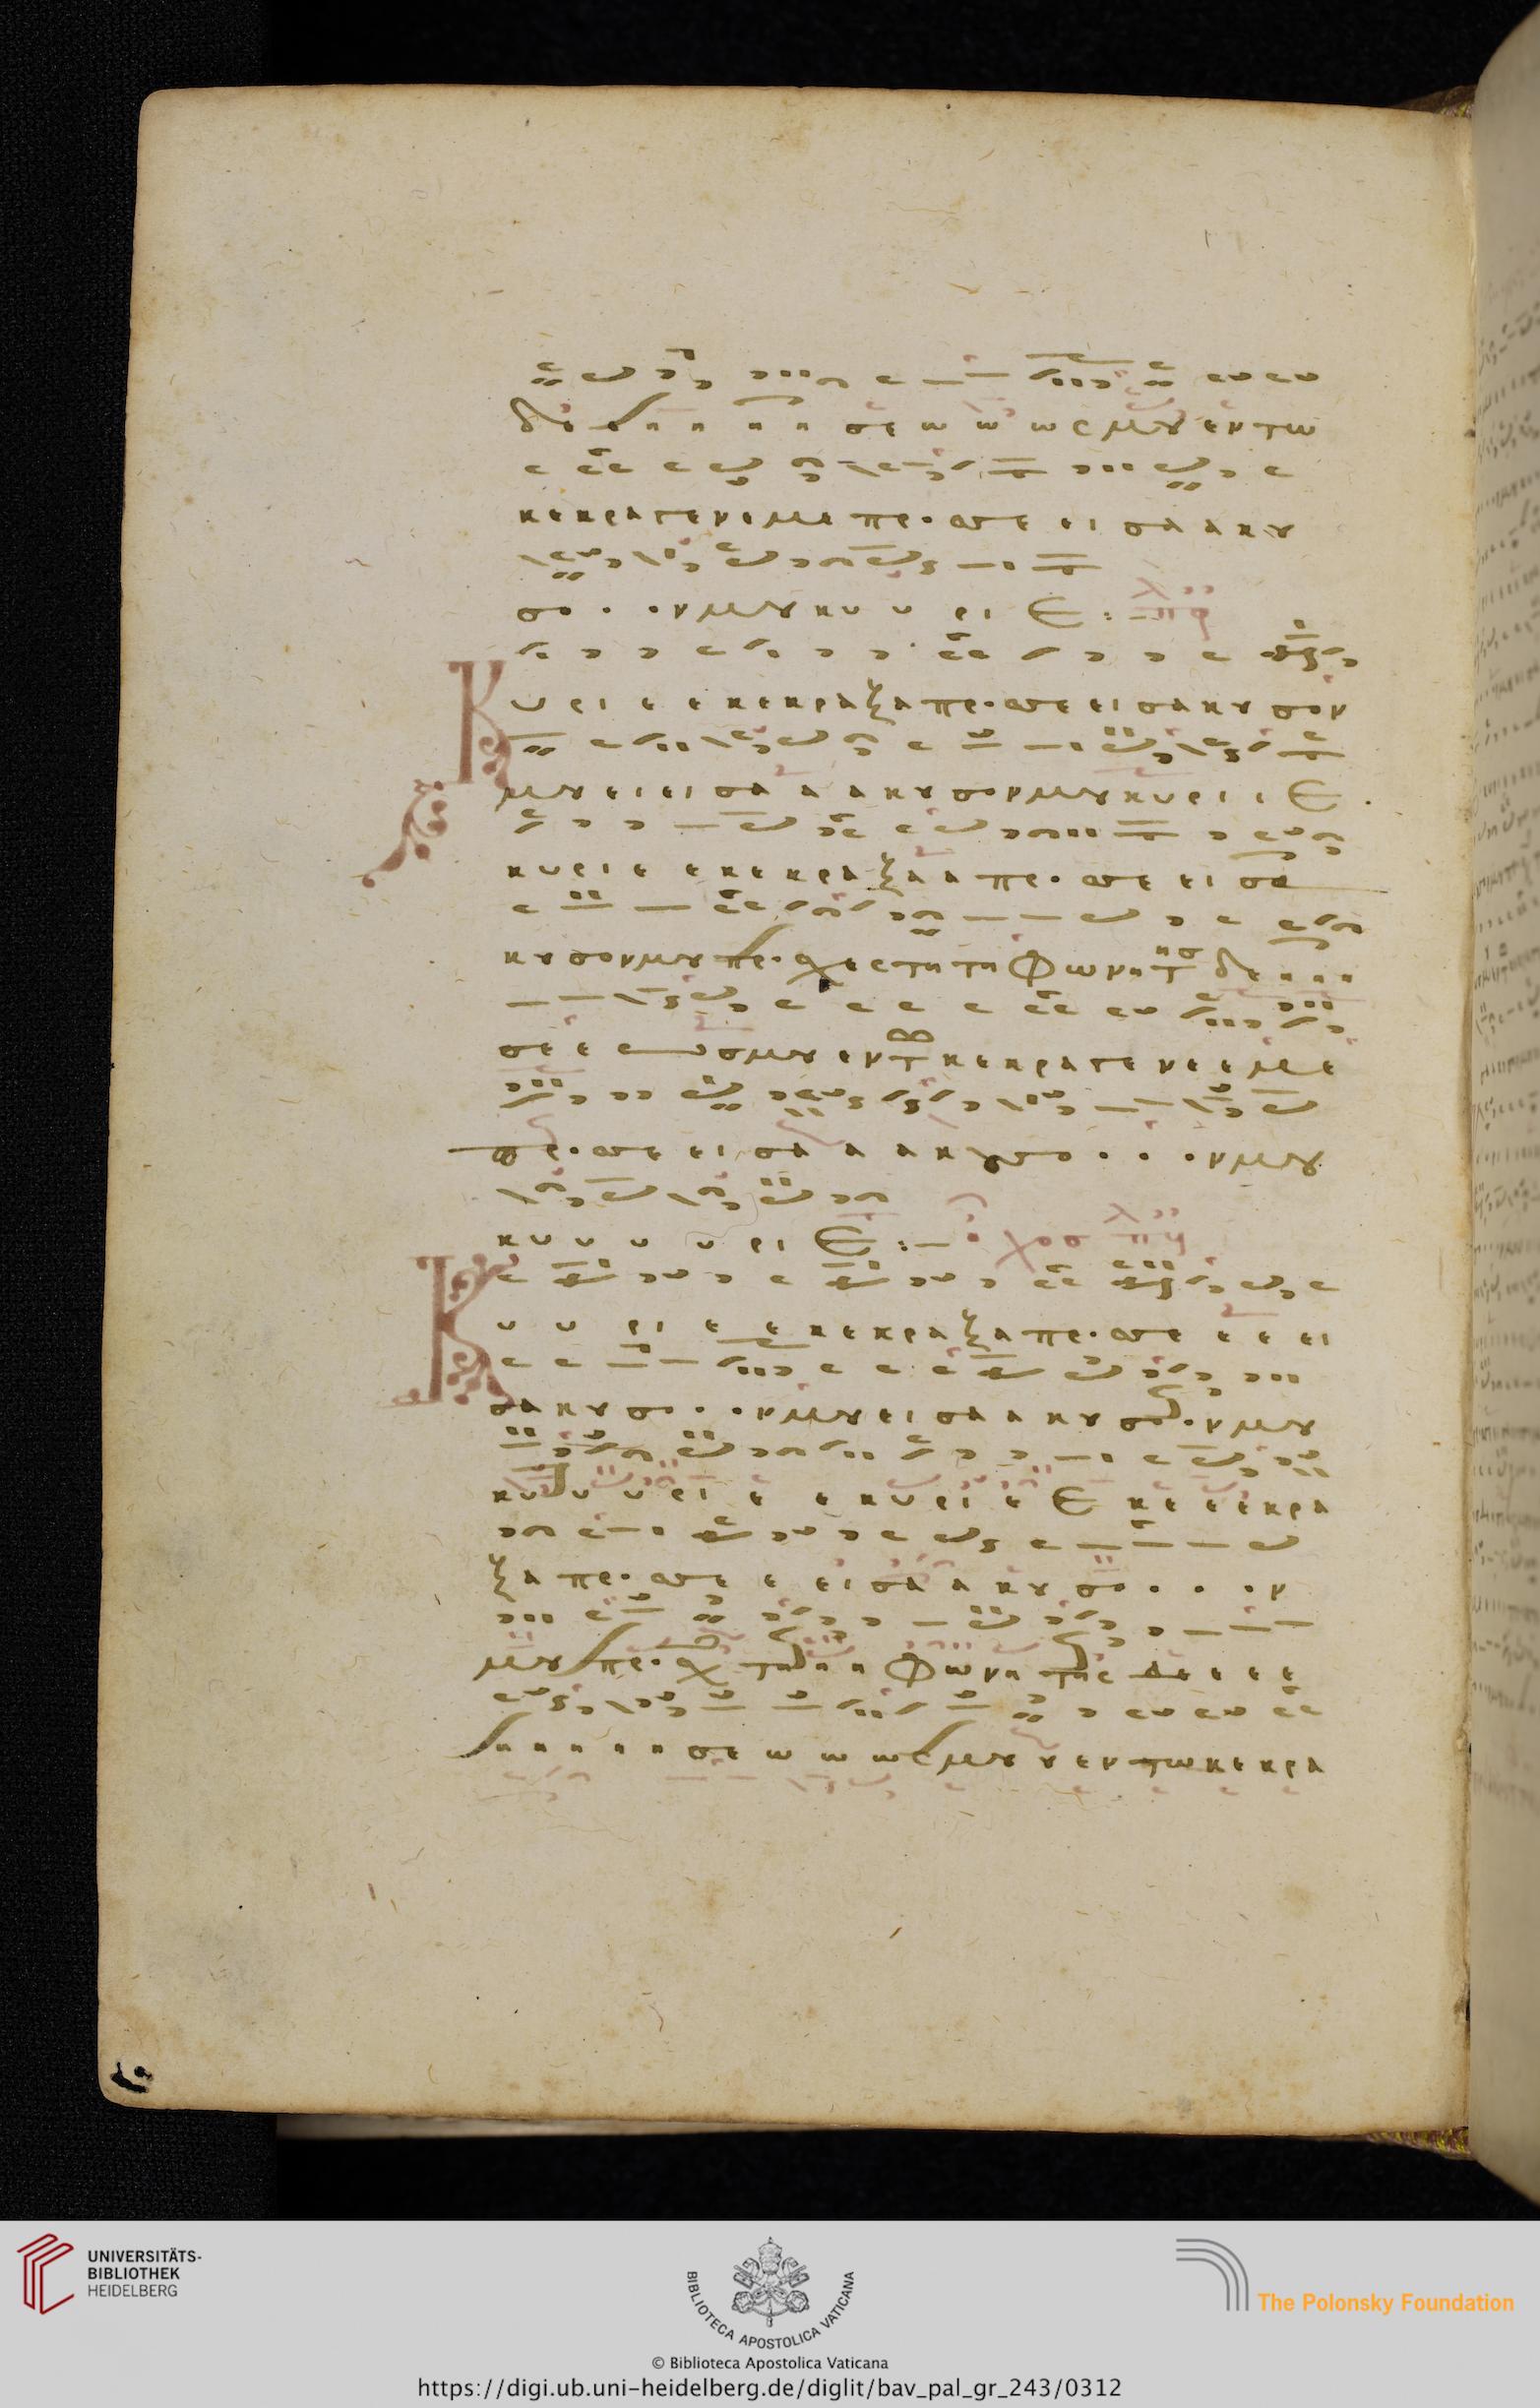 δε ε η η η η σε ω ω ως μου εν τω
κε κρα γε νε με προ σε ει σα α κου
σο ο ον μου κυ υ ρι ε :-
Κυ ρι ε ε κε κρα ξα προ σε ει σα κου σον
μου ει ει σα α α κου σον μου κυ ρι ι ε .
κυ ρι ε ε κε κρα ξα α προ σε ει σα
κου σον μου προ χες τη τη φω νη της δε η η η
σε ε ως μου εν τ κε κρα γε νε ε με ε
προ σε ει σα α α κου σο ο ο ον μου
κυ υ υ υ ρι ε :-
Κυ υ ρι ε ε κε κρα ξα προ σε ε ε ει
σα κου σο ο ον μου ει σα α κου σο ον μου
κυ υ υ ρι ε ε κυ ρι ε ε κε ε ε κρα
ξα προ σε ε ει σα α κου σο ο ο ον
μου προ χ τη η η φω νη της δε ε ε ε
η η η η η σε ω ω ως μου ου εν τω κε κρα
UNIVERSITÄTS-
BIBLIOTHEK
HEIDELBERG
BIBLIOTECA APOSTOLICA VATICANA
The Polonsky Foundation
© Biblioteca Apostolica Vaticana
https://digi.ub.uni-heidelberg.de/diglit/bav_pal_gr_243/0312